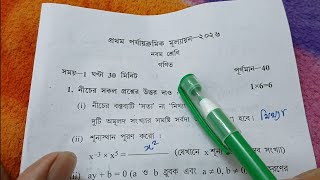 প্রথম পর্যায়ক্রমিক মূল্যায়ন-২০২৬
নবম শ্রেণি
গণিত
সময়-1 ঘণ্টা 30 মিনিট পূর্ণমান-40
1. নীচের সকল প্রশ্নের উত্তর দাও 1×6=6
(i) নীচের বক্তব্যটি 'সত্য' না 'মিথ্যা
দুটি অমূলদ সংখ্যার সমষ্টি সর্বদা হবে। মিথ্যা
(ii) শূন্যস্থান পূরণ করো : x²
x⁻³ × x⁵ = (যেখানে x শূন্য সংখ্যা)
(iii) ay + b = 0 (a ও b ধ্রুবক এবং a ≠ 0, b ≠